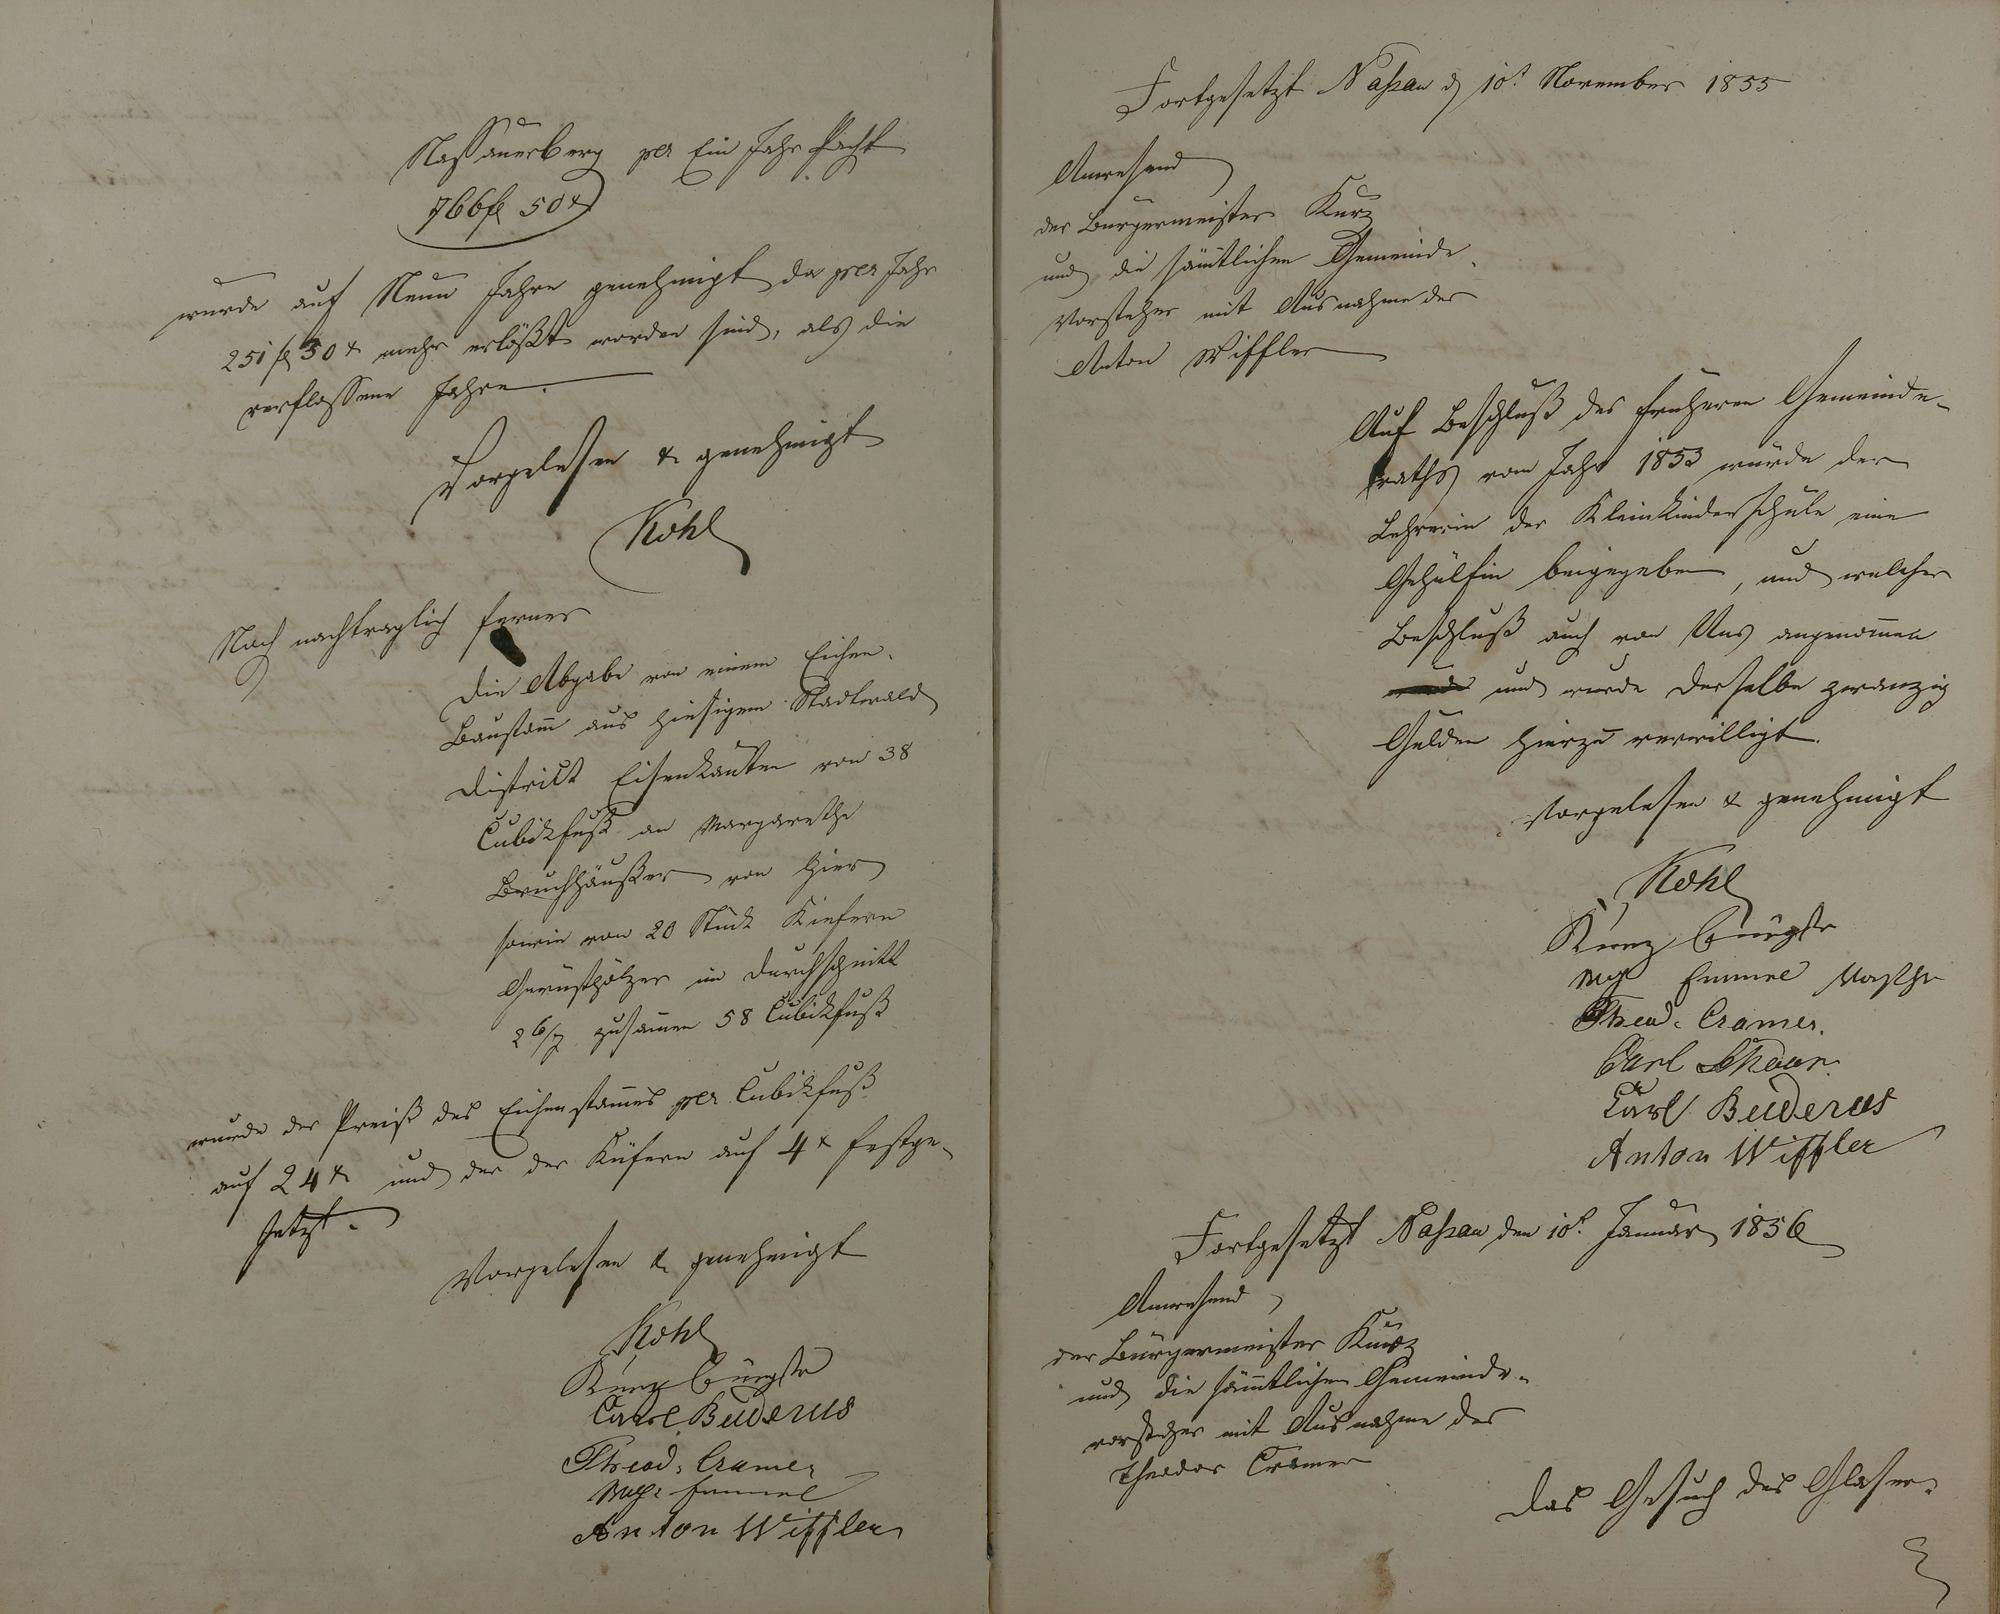 Nassauerberg per Ein Jahr Pacht
766 fl 50 x
wurde auf Neun Jahre genehmigt da per Jahr
251 fl 30 x mehr erlößt worden sind, als die
verflossene Jahre.
Vorgelesen & genehmigt
Kohl
Noch nachtraglich ferner
Die Abgabe von einem Eichen-
Baustam̅ aus hiesigem Stadtwald
District Eisenkauten von 38
Cubikfuß an Margarethe
Bruchhäußer von hier
sowie von 20 Stück Kiefern
Gerüsthölzer im Durchschnitt
zusam̅en 58 Cubikfuß
wurde der Preiß des Eichenstam̅es per Cubikfuß
auf 24 x und der der Küfern auf 4 x festge-
setzt.
Vorgelesen & genehmigt
Kohl
Kunz
Carl Buderus
Theod. Cramer
Emmel
Anton Wiffler
Fortgesetzt Naßau d 10t November 1855
Anwesend
der Bürgermeister
und die säm̅tlichen Gemeinde-
Vorsteher mit Ausnahme des
Anton Wiffler
Auf Beschluß des früheren Gemeinde-
raths vom Jahr 1853 wurde der
Lehrerin der Kleinkinderschule eine
Gehülfin beigegeben, und welcher
Beschluß auch von Uns angenom̅en
und wurde derselbe zwanzig
Gulden hierzu verwilligt.
Vorgelesen & genehmigt
Kohl
Kunz
Emmel
Theod. Cramer.
Carl
Carl Buderus
Anton Wiffler
Fortgesetzt Naßau den 10t Januar 1856
Anwesend
der Bürgermeister
und die säm̅tlichen Gemeinde-
vorsteher mit Ausnahme des
Theodor Cramer
Das Gesuch des Glaser-